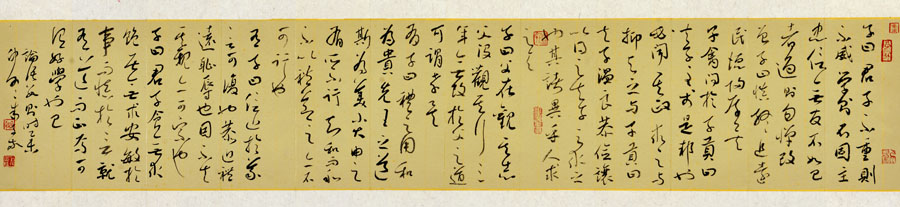 子曰君子不重則
不威學則不固主
忠信無友不如己
者過則勿憚改
曾子曰慎終追遠
民德歸厚矣
子禽問於子貢曰
夫子至於是邦也
必聞其政求之與
抑與之與子貢曰
夫子溫良恭儉讓
以得之夫子之求之
也其諸異乎人求
之與
子曰父在觀其志
父沒觀其行三
年無改於父之道
可謂孝矣
有子曰禮之用和
為貴先王之道
斯為美小大由之
有所不行知和而和
不以禮節之亦不
可行也
有子曰信近於義
言可復也恭近於禮
遠恥辱也因不失
其親亦可宗也
子曰君子食無求
飽居無求安敏於
事而慎於言就
有道而正焉可
謂好學也已
論語